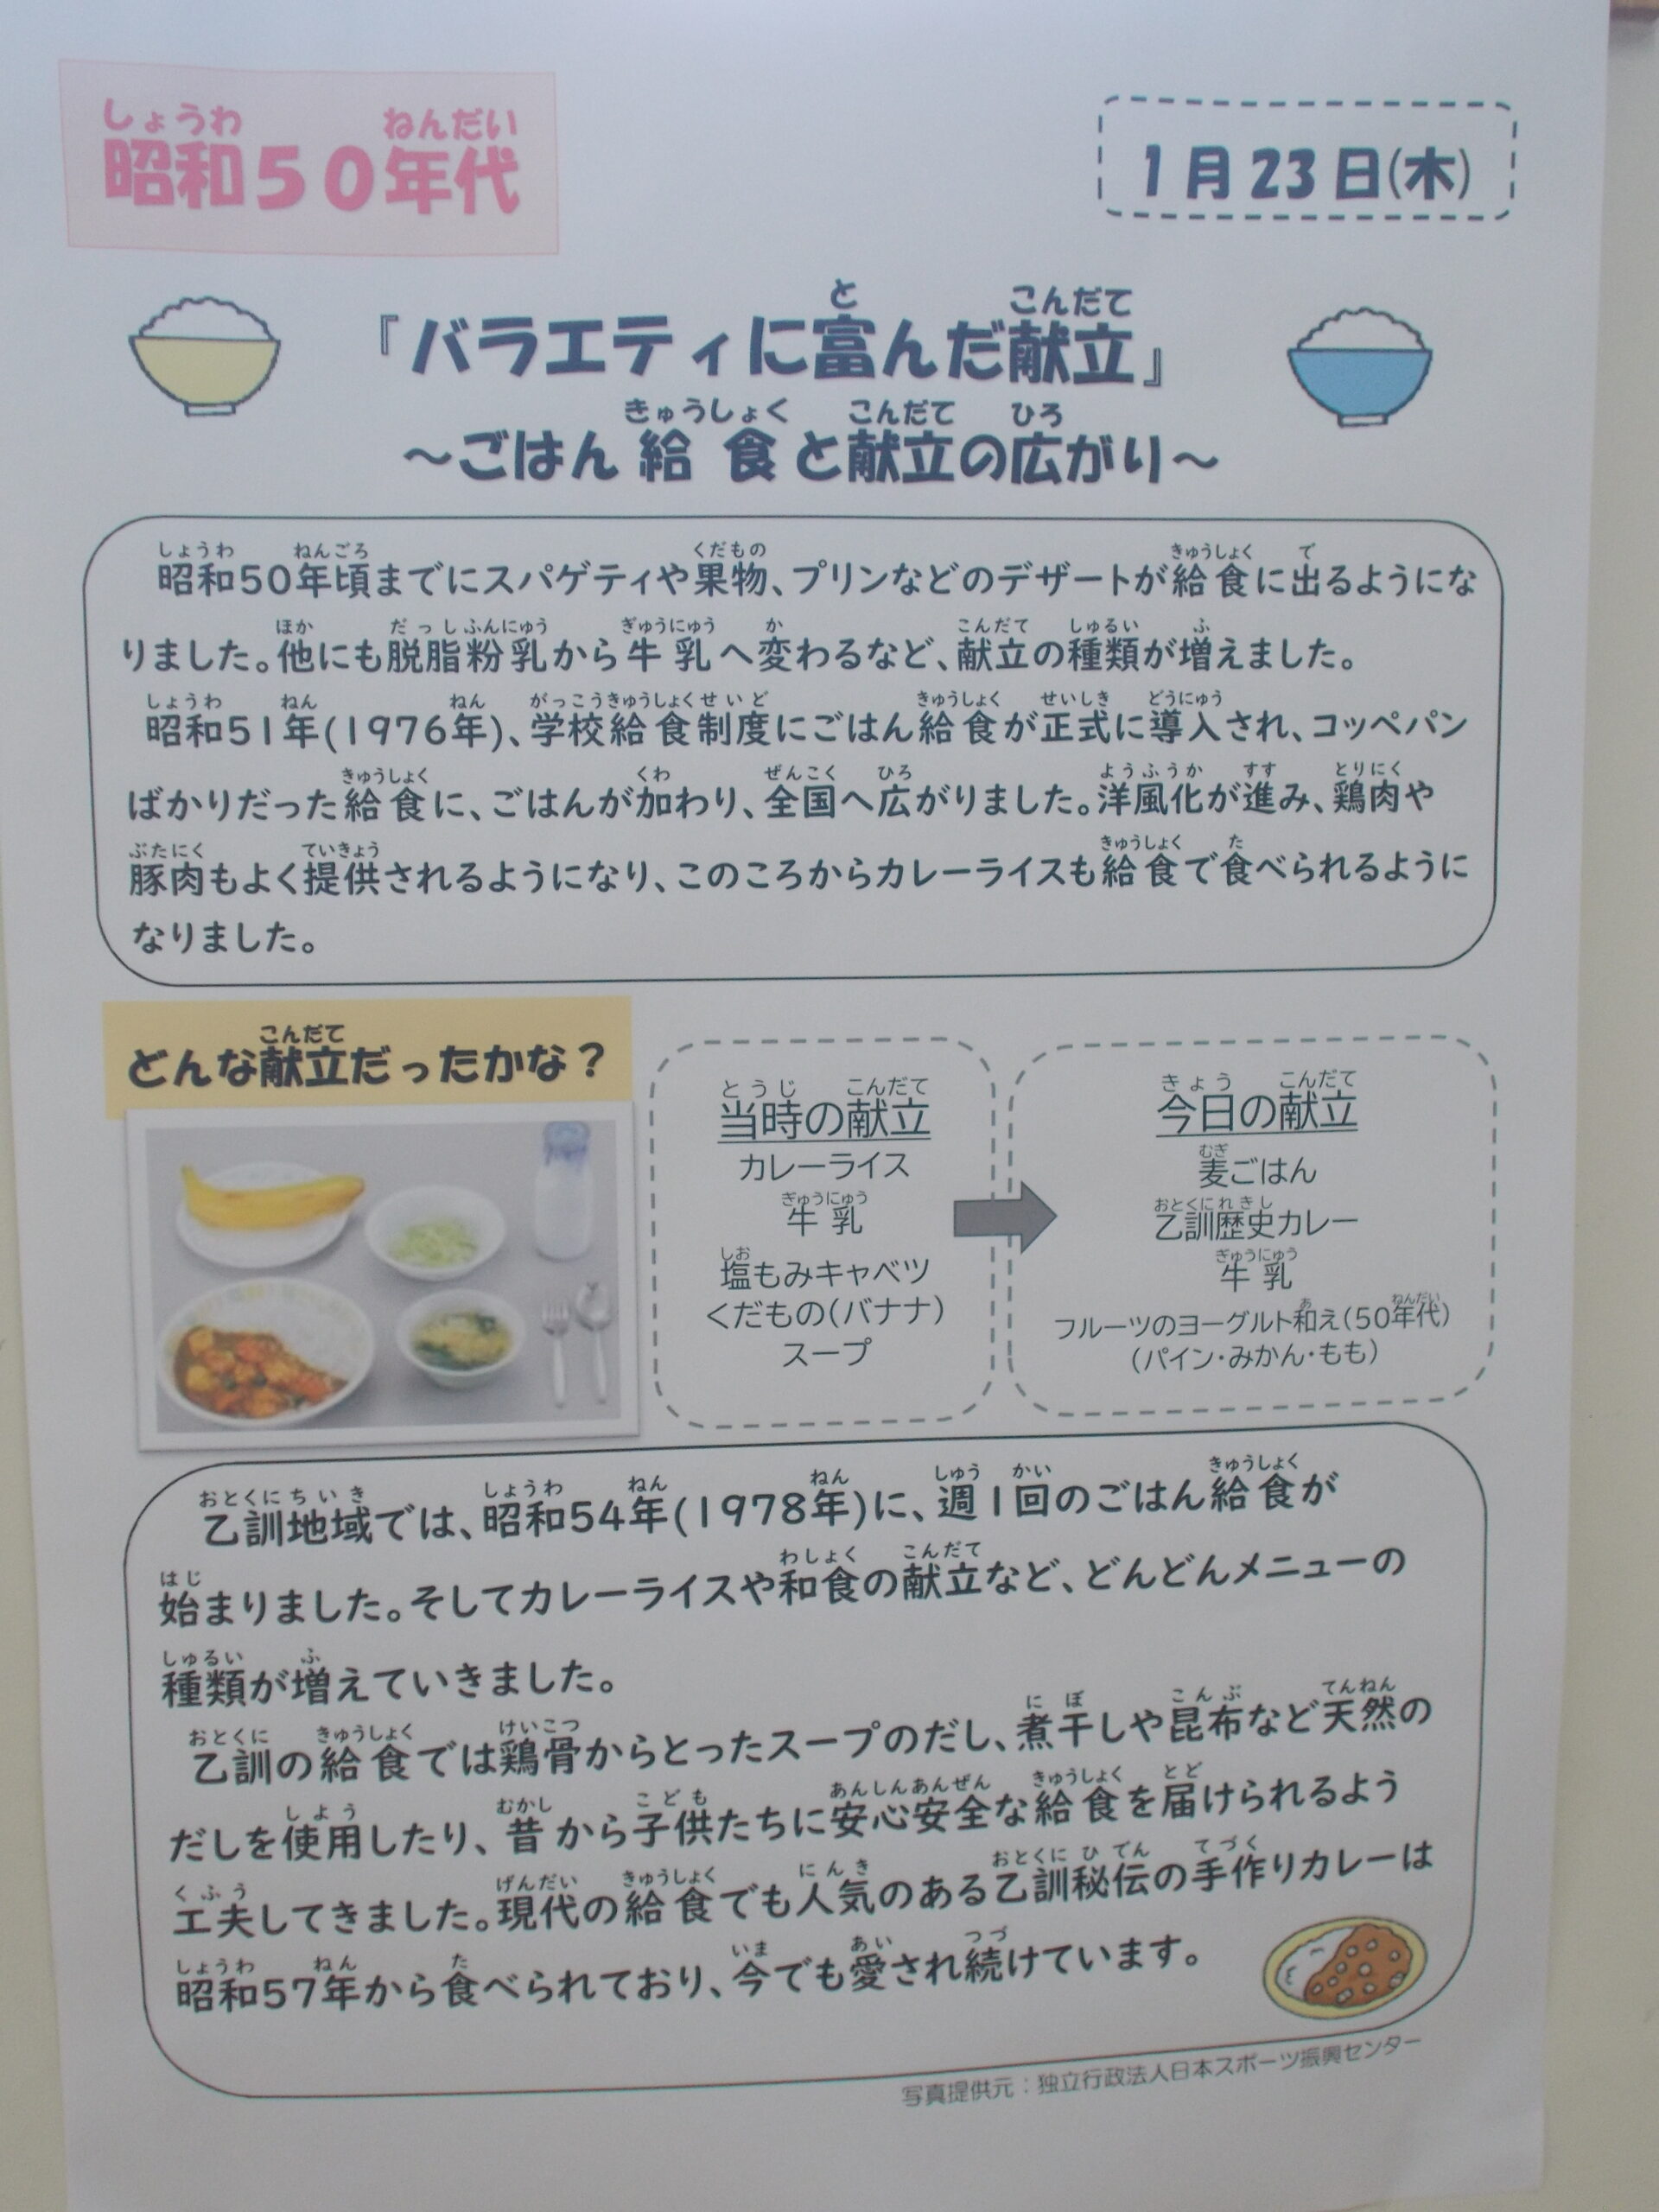 昭和50年代
1月23日(木)
『バラエティに富んだ献立』
～ごはん給食と献立の広がり～
昭和50年頃までにスパゲティや果物、プリンなどのデザートが給食に出るようにな
りました。他にも脱脂粉乳から牛乳へ変わるなど、献立の種類が増えました。
昭和51年(1976年)、学校給食制度にごはん給食が正式に導入され、コッペパン
ばかりだった給食に、ごはんが加わり、全国へ広がりました。洋風化が進み、鶏肉や
豚肉もよく提供されるようになり、このころからカレーライスも給食で食べられるように
なりました。
どんな献立だったかな？
当時の献立
カレーライス
牛乳
塩もみキャベツ
くだもの(バナナ)
スープ
今日の献立
麦ごはん
乙訓歴史カレー
牛乳
フルーツのヨーグルト和え(50年代)
(パイン・みかん・もも)
乙訓地域では、昭和54年(1978年)に、週1回のごはん給食が
始まりました。そしてカレーライスや和食の献立など、どんどんメニューの
種類が増えていきました。
乙訓の給食では鶏骨からとったスープのだし、煮干しや昆布など天然の
だしを使用したり、昔から子供たちに安心安全な給食を届けられるよう
工夫してきました。現代の給食でも人気のある乙訓秘伝の手作りカレーは
昭和57年から食べられており、今でも愛され続けています。
写真提供元：独立行政法人日本スポーツ振興センター